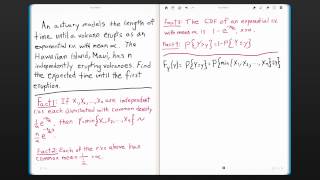 An actuary models the length of
time until a volcano erupts as an
exponential rv with mean ∝. The
Hawaiian Island, Maui, has n
independently erupting volcanoes. Find
the expected time until the first
eruption.
Fact1: If X₁,X₂,...,Xₙ are independent
rvs each distributed with common density
then Y=min{X₁,X₂,...,Xₙ} ~
Fact2: Each of the rvs above has
common mean
Fact3: The CDF of an exponential rv
with mean ∝ is 1-e^(-x/∝), x>0.
Fact4: P{Y≤y}=1-P{Y>y}
F_Y(y)= P{Y≤y}= P{min{X₁,X₂,...,Xₙ}≤y}